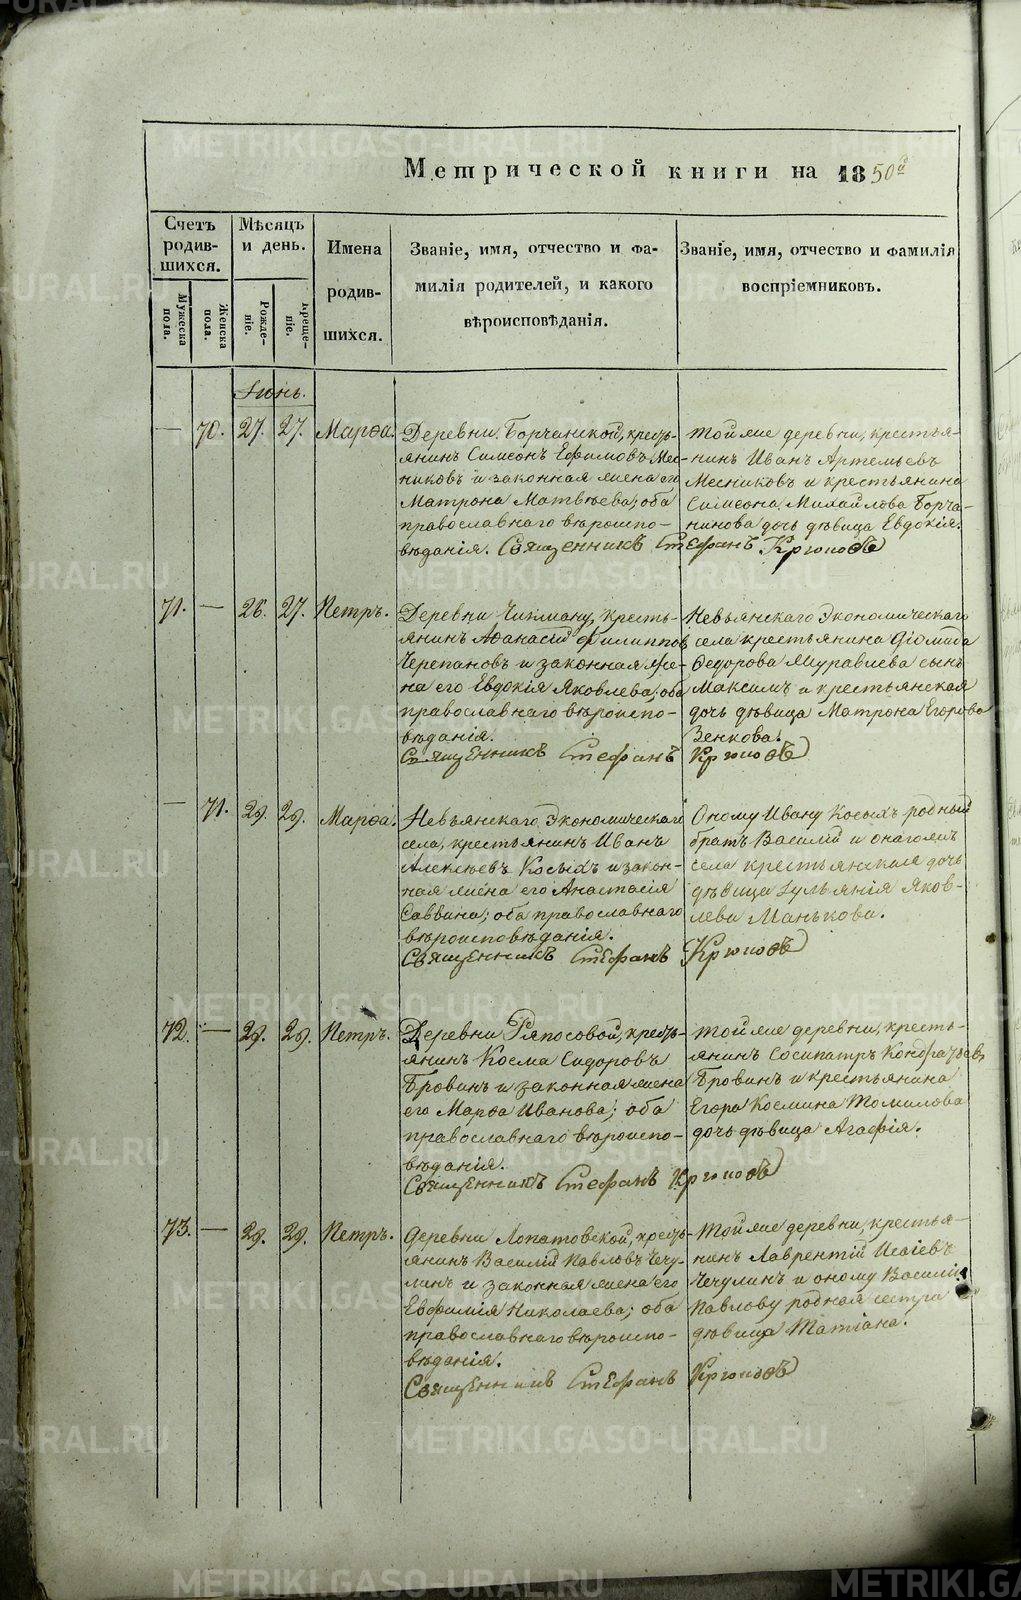 Метрической книги на 1850й
Счетъ родив-шихся.
Мѣсяцъ и день.
Имена родив-шихся.
Званіе, имя, отчество и фа-
милія родителей, и какого
вѣроисповѣданія.
Званіе, имя, отчество и фамилія
воспріемниковъ.
Мужеска пола.
Женска пола.
Рожде-ніе.
Креще-ніе.
Іюнь.
— 70. 27. 27. Марѳа.
Деревни Борчанской, кресть-
янинъ Симеонъ Ефимовъ Мес-
никовъ и законная жена его
Матрона Матвѣева; оба
православнаго вѣроиспо-
вѣданія. Священникъ Стефанъ Крюковъ
Той же деревни, крестья-
нинъ Иванъ Артемьевъ
Месниковъ и крестьянина
Симеона Михайлова Борча-
нинова дочь дѣвица Евдокія.
71. — 26. 27. Петръ.
Деревни, кресть-
янинъ Аѳанасій Филиппов
Черепановъ и законная же-
на его Евдокія Яковлева; оба
православнаго вѣроиспо-
вѣданія.
Священникъ Стефанъ Крюковъ
Невьянскаго Экономическаго
села крестьянина Діомида
Ѳедорова Муравьева сынъ
Максимъ и крестьянская
дочь дѣвица Матрона Егорова
Зенкова.
— 71. 29. 29. Марѳа.
Невьянскаго Экономическаго
села, крестьянинъ Иванъ
Алексѣевъ Косыхъ и закон-
ная жена его Анастасія
Саввина; оба православнаго
вѣроисповѣданія.
Священникъ Стефанъ Крюковъ
Оному Ивану Косыхъ родный
братъ Василій и онагожъ
села крестьянская дочь
дѣвица Іульянія Яков-
лева Манькова.
72. — 29. 29. Петръ.
Деревни Ряпосовой, кресть-
янинъ Косма Сидоровъ
Бровинъ и законная жена
его Марѳа Иванова; оба
православнаго вѣроиспо-
вѣданія.
Священникъ Стефанъ Крюковъ
Той же деревни, кресть-
янинъ Сосипатръ Кондратьевъ
Бровинъ и крестьянина
Егора Космина Томилова
дочь дѣвица Агафія.
73. — 29. 29. Петръ.
Деревни Лопатовской, кресть-
янинъ Василій Павловъ Чечу-
линъ и законная жена его
Евфимія Николаева; оба
православнаго вѣроиспо-
вѣданія.
Священникъ Стефанъ Крюковъ
Той же деревни, крестья-
нинъ Лаврентій Исаіевъ
Чечулинъ и оному Василію
Павлову родная сестра
дѣвица Татіана.
METRIKI.GASO-URAL.RU